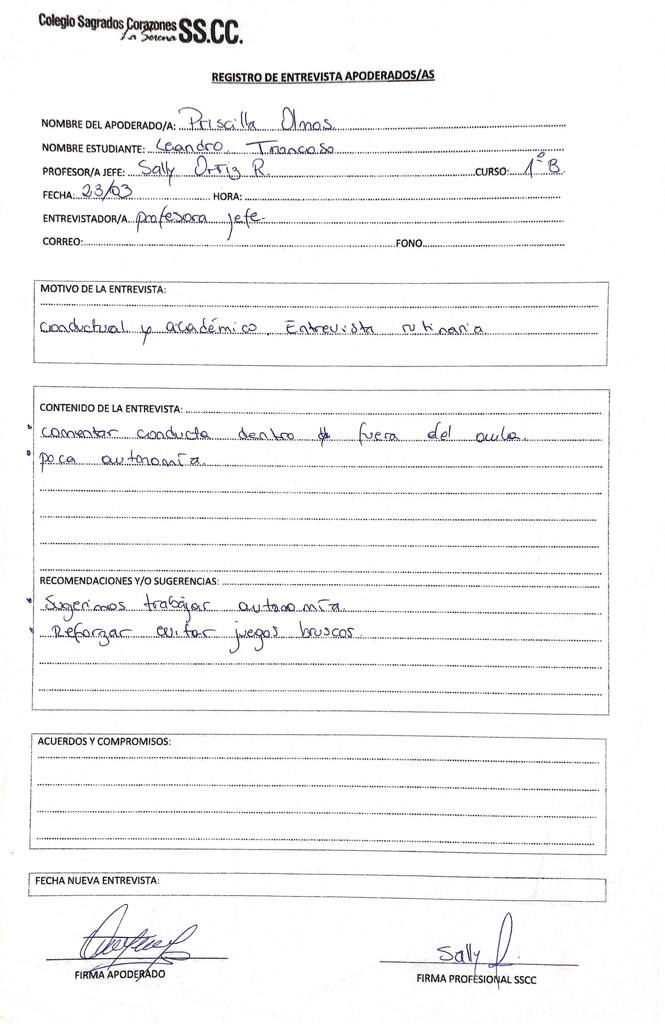 Colegio Sagrados Corazones SS.CC.
La Serena
REGISTRO DE ENTREVISTA APODERADOS/AS
NOMBRE DEL APODERADO/A: Priscilla Olmos
NOMBRE ESTUDIANTE: Leandro Troncoso
PROFESOR/A JEFE: Sally Ortiz R. CURSO: 1°B
FECHA: 23/03 HORA:
ENTREVISTADOR/A profesora jefe.
CORREO: FONO
MOTIVO DE LA ENTREVISTA:
conductual y académico. Entrevista rutinaria
CONTENIDO DE LA ENTREVISTA:
• comentar conducta dentro fuera del aula.
• poca autonomía.
RECOMENDACIONES Y/O SUGERENCIAS:
• Sugerimos trabajar autonomía.
• Reforzar evitar juegos bruscos
ACUERDOS Y COMPROMISOS:
FECHA NUEVA ENTREVISTA:
Sally
FIRMA APODERADO FIRMA PROFESIONAL SSCC